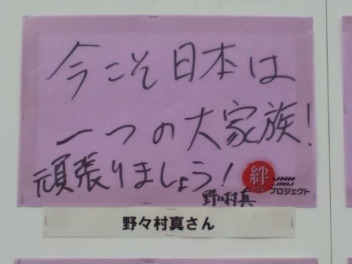 今こそ日本は
一つの大家族!
頑張りましょう!
絆
JNN
JRN
プロジェクト
野々村真
野々村真さん